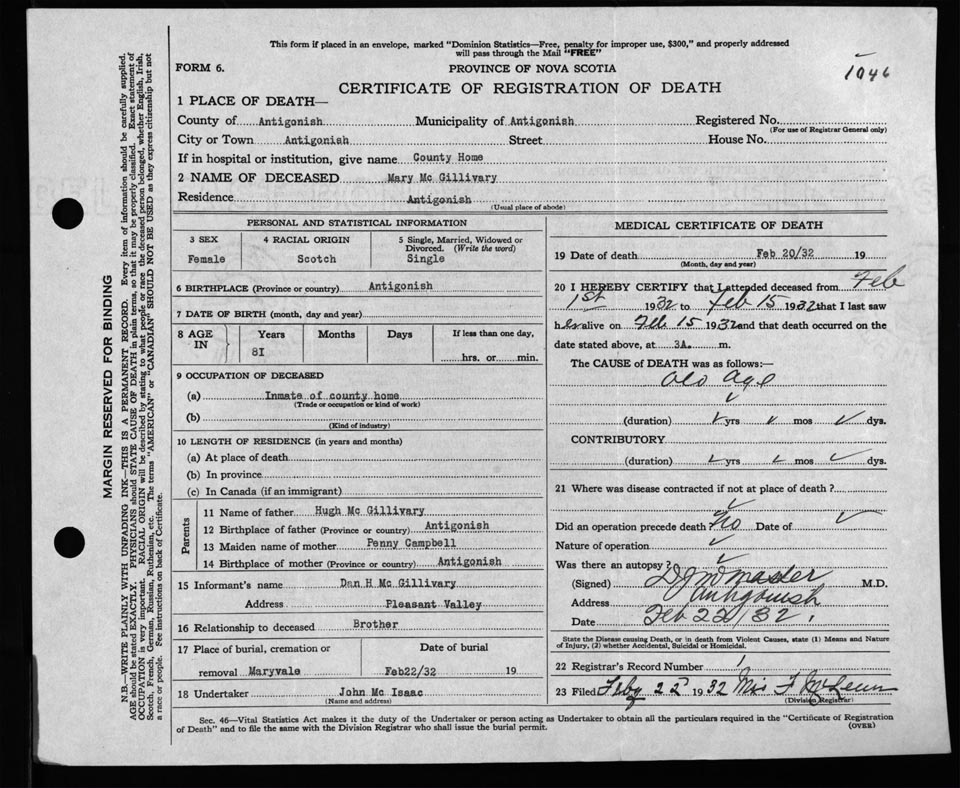 This form if placed in an envelope, marked "Dominion Statistics—Free, penalty for improper use, $300," and properly addressed
will pass through the Mail "FREE"
FORM 6.
PROVINCE OF NOVA SCOTIA
1046
CERTIFICATE OF REGISTRATION OF DEATH
1 PLACE OF DEATH—
County of Antigonish Municipality of Antigonish Registered No.
(For use of Registrar General only)
City or Town Antigonish Street House No.
If in hospital or institution, give name County Home
2 NAME OF DECEASED Mary Mc Gillivary
Residence Antigonish
(Usual place of abode)
PERSONAL AND STATISTICAL INFORMATION
3 SEX 4 RACIAL ORIGIN 5 Single, Married, Widowed or
Divorced. (Write the word)
Female Scotch Single
6 BIRTHPLACE (Province or country) Antigonish
7 DATE OF BIRTH (month, day and year)
8 AGE IN Years Months Days If less than one day,
8I hrs. or min.
9 OCCUPATION OF DECEASED
(a) Inmate of county home
(Trade or occupation or kind of work)
(b)
(Kind of industry)
10 LENGTH OF RESIDENCE (in years and months)
(a) At place of death
(b) In province
(c) In Canada (if an immigrant)
Parents
11 Name of father Hugh Mc Gillivary
12 Birthplace of father (Province or country) Antigonish
13 Maiden name of mother Penny Campbell
14 Birthplace of mother (Province or country) Antigonish
15 Informant's name Dan H Mc Gillivary
Address Pleasant Valley
16 Relationship to deceased Brother
17 Place of burial, cremation or Date of burial
removal Maryvale Feb22/32 19
18 Undertaker John Mc Isaac
(Name and address)
MEDICAL CERTIFICATE OF DEATH
19 Date of death Feb 20/32 19
(Month, day and year)
20 I HEREBY CERTIFY that I attended deceased from Feb
1st 1932 to Feb 15 1932 that I last saw
her alive on Feb 15 1932 and that death occurred on the
date stated above, at 3A. m.
The CAUSE of DEATH was as follows:—
Old Age
(duration) yrs mos dys.
CONTRIBUTORY
(duration) yrs mos dys.
21 Where was disease contracted if not at place of death?
Did an operation precede death? No Date of
Nature of operation
Was there an autopsy?
(Signed) M.D.
Address Antigonish
Date Feb 22/32.
State the Disease causing Death, or in death from Violent Causes, state (1) Means and Nature
of Injury, (2) whether Accidental, Suicidal or Homicidal.
22 Registrar's Record Number 1
23 Filed 1932
(Division Registrar)
Sec. 46—Vital Statistics Act makes it the duty of the Undertaker or person acting as Undertaker to obtain all the particulars required in the "Certificate of Registration
of Death" and to file the same with the Division Registrar who shall issue the burial permit.
(OVER)
MARGIN RESERVED FOR BINDING
N.B.—WRITE PLAINLY WITH UNFADING INK—THIS IS A PERMANENT RECORD. Every item of information should be carefully supplied.
AGE should be stated EXACTLY. PHYSICIANS should STATE CAUSE OF DEATH in plain terms, so that it may be properly classified. Exact statement of
OCCUPATION is very important. RACIAL ORIGIN will be described by stating to what people or race the deceased person belonged, whether English, Irish,
Scotch, French, German, Russian, Ruthenian, etc. The terms "AMERICAN" or "CANADIAN" SHOULD NOT BE USED as they express citizenship but not
a race or people. See instructions on back of Certificate.